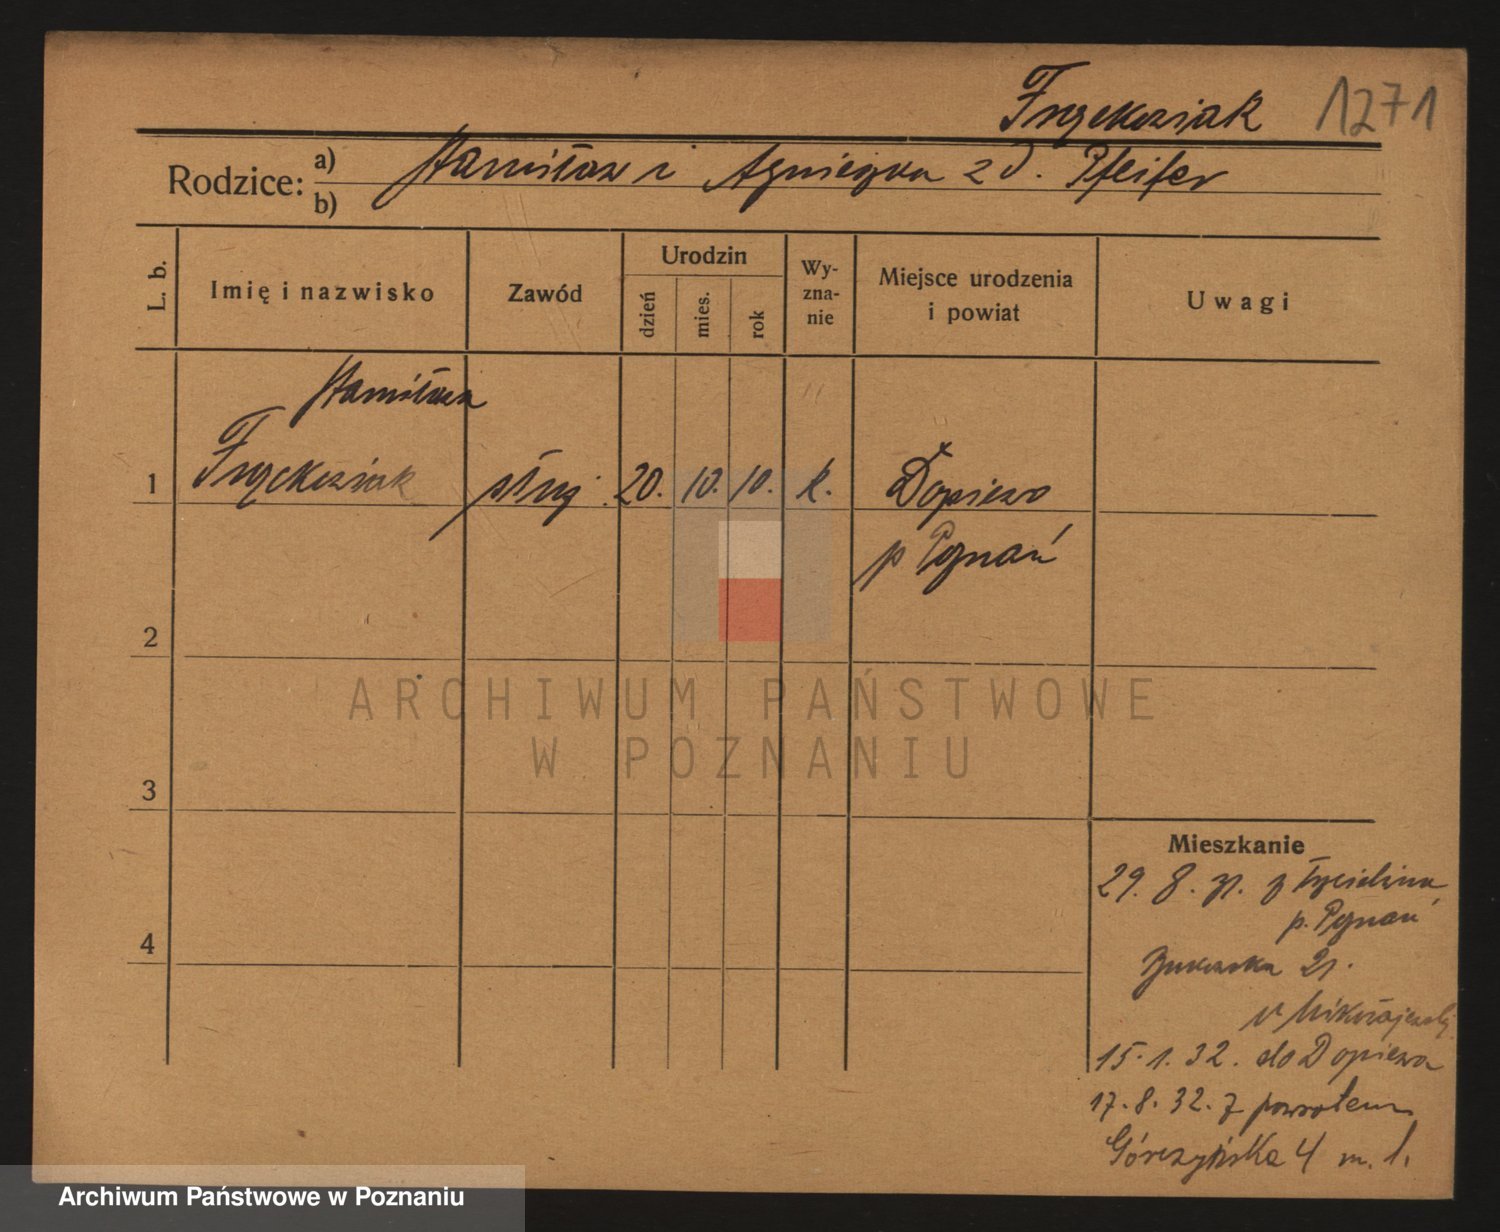 Frąckowiak 1271
Rodzice: a) b) Stanisław i Agnieszka z d. Pfeifer
L. b. Imię i nazwisko Zawód Urodzin dzień mies. rok Wy-zna-nie Miejsce urodzenia i powiat Uwagi
Stanisława
1 Frąckowiak służ. 20. 10. 10. k. Dopiewo
p Poznań
2
ARCHIWUM PAŃSTWOWE
W POZNANIU
3
Mieszkanie
29. 8. 31. z
p. Poznań
4
Bukowska 21.
u Mikołajczak
15. 1. 32. do Dopiewa
17. 8. 32. z powrotem
Górczyńska 4 m. 1.
Archiwum Państwowe w Poznaniu